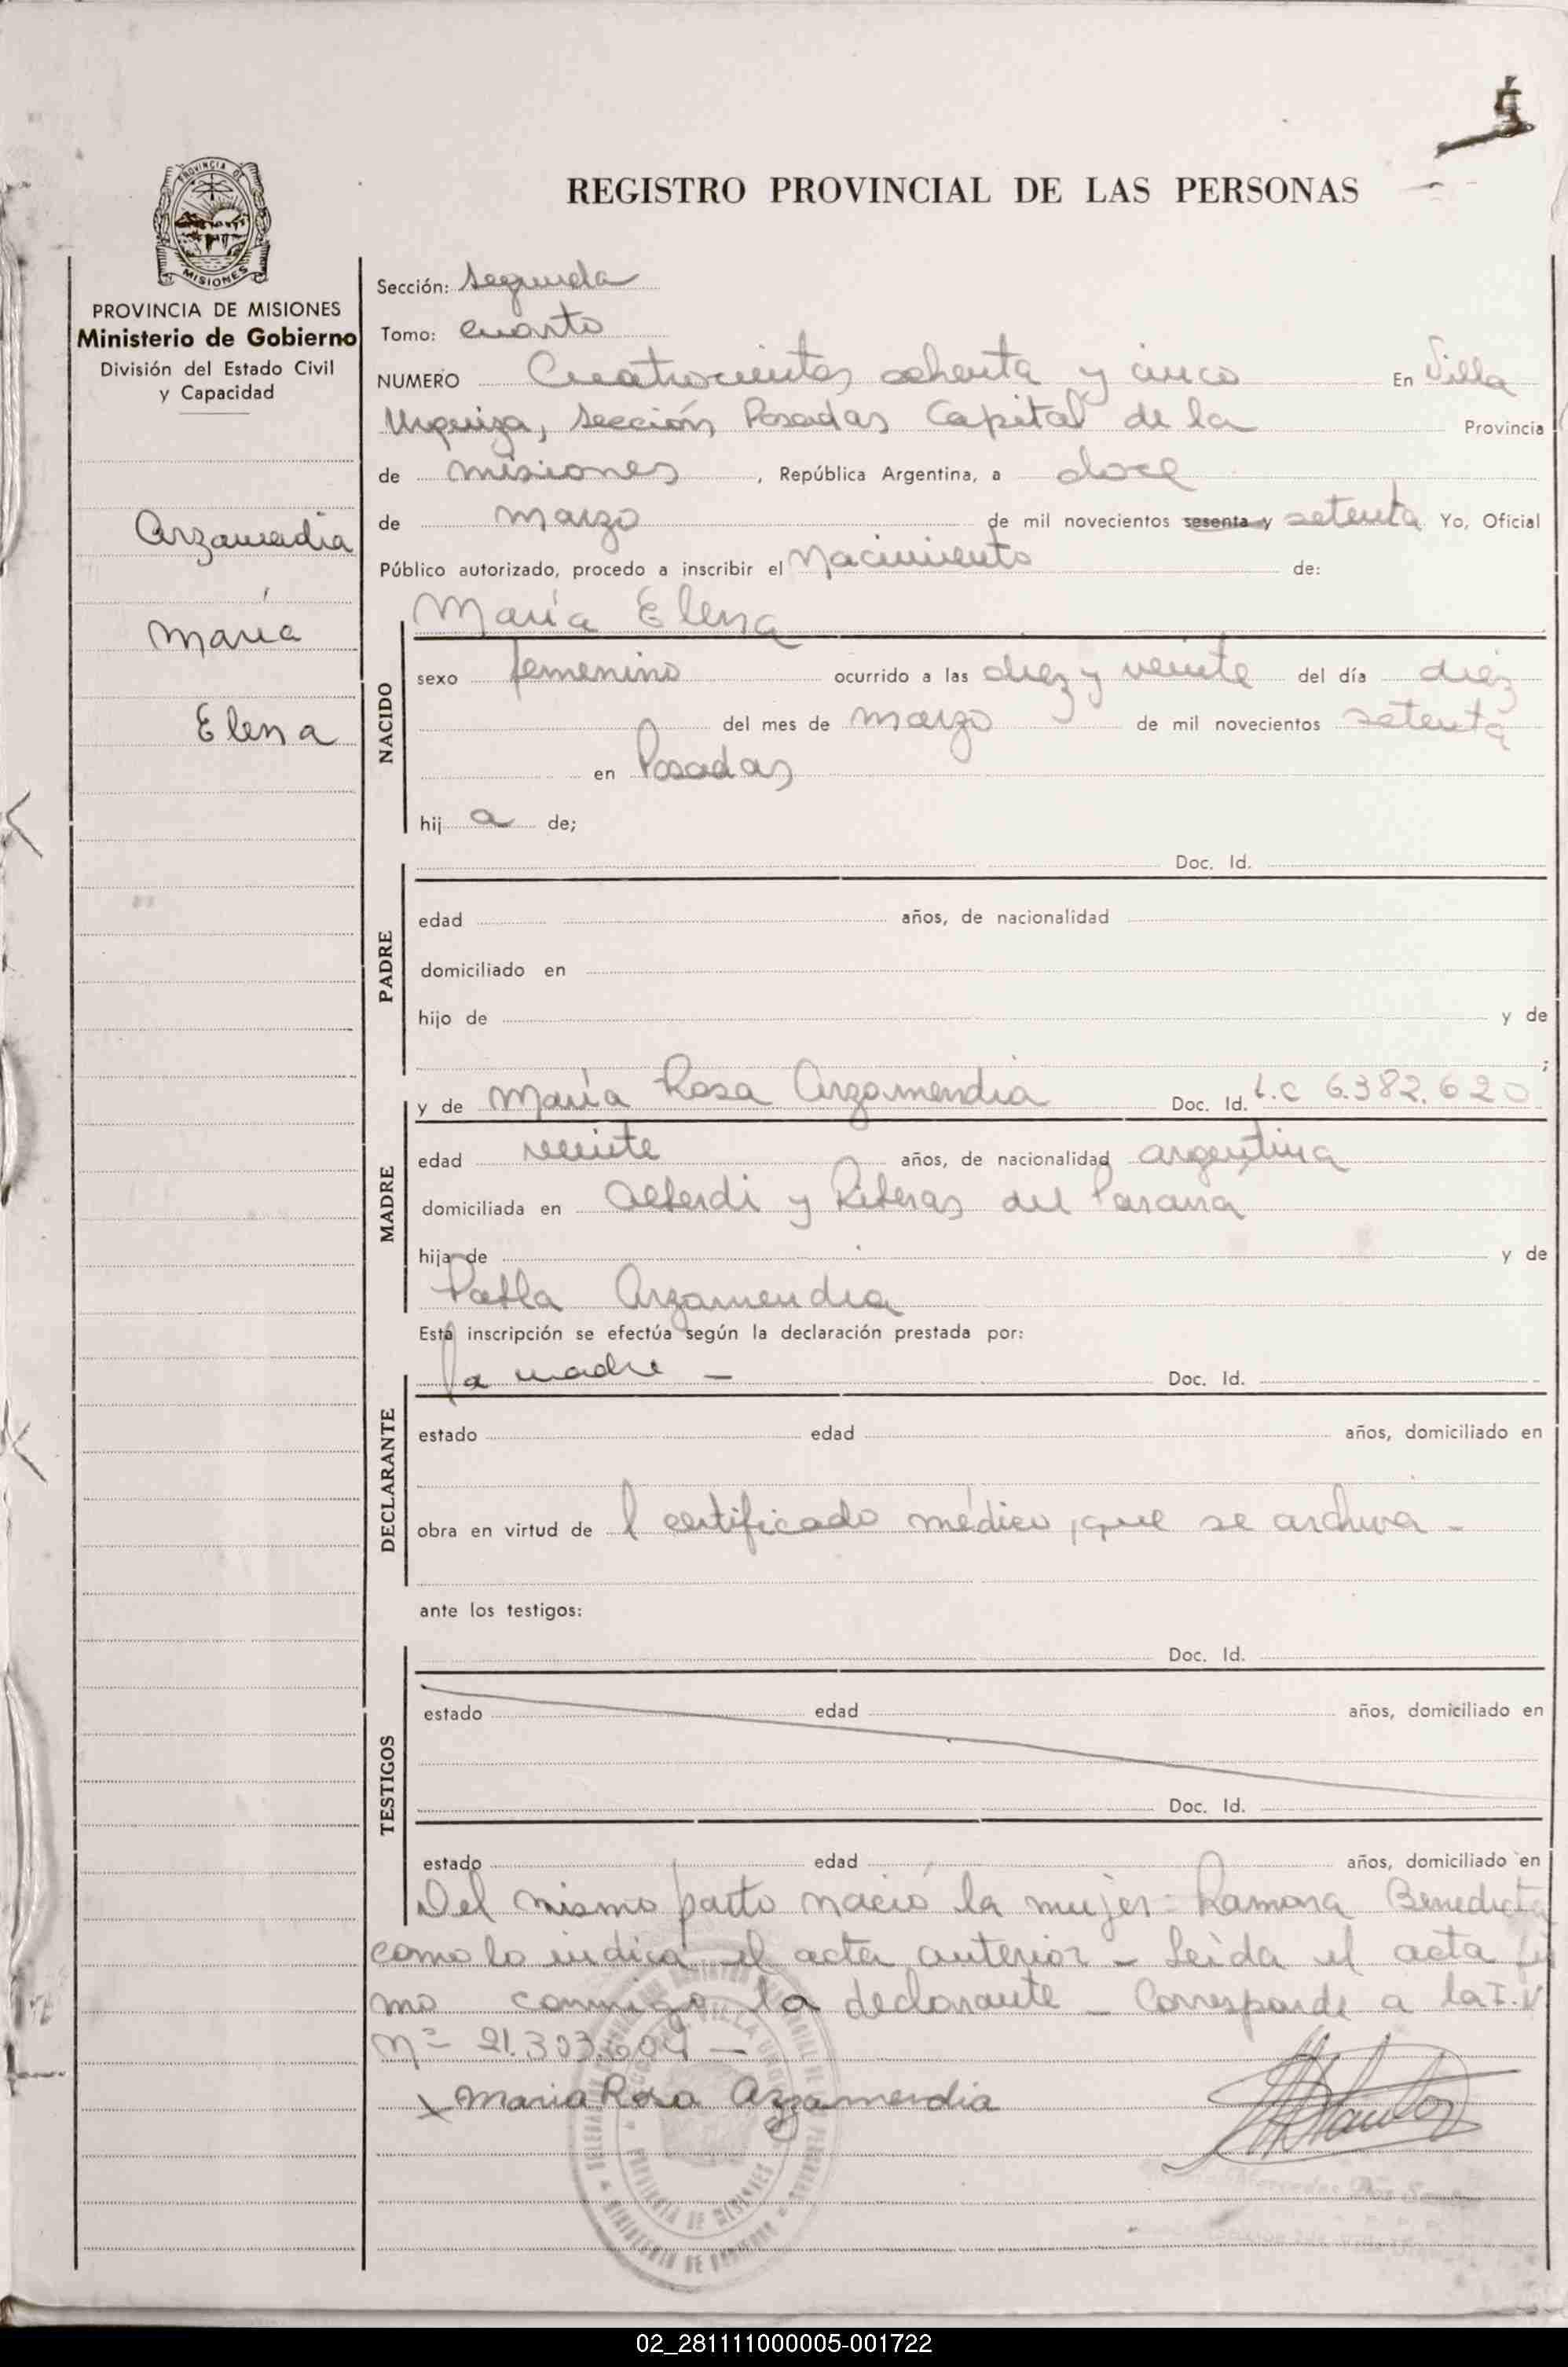 5
REGISTRO PROVINCIAL DE LAS PERSONAS
PROVINCIA DE MISIONES
PROVINCIA DE MISIONES
Ministerio de Gobierno
División del Estado Civil
y Capacidad
Arzamendia
María
Elena
Sección: Segunda
Tomo: Cuarto
NUMERO Cuatrocientos ochenta y cinco En Villa
Urquiza, Sección Posadas Capital de la Provincia
de misiones, República Argentina, a doce
de marzo de mil novecientos sesenta y setenta Yo, Oficial
Público autorizado, procedo a inscribir el Nacimiento de:
María Elena
NACIDO
sexo femenino ocurrido a las diez y veinte del día diez
del mes de marzo de mil novecientos setenta
en Posadas
hij a de;
PADRE
Doc. Id.
edad años, de nacionalidad
domiciliado en
hijo de y de
;
MADRE
y de María Rosa Arzamendia Doc. Id. L.C 6.382.620
edad veinte años, de nacionalidad argentina
domiciliada en Alberdi y Riberas del Parana
hija de y de
Pabla Arzamendia
Esta inscripción se efectúa según la declaración prestada por:
DECLARANTE
la madre - Doc. Id.
estado edad años, domiciliado en
obra en virtud de l certificado médico, que se archiva -
ante los testigos:
TESTIGOS
Doc. Id.
estado edad años, domiciliado en
Doc. Id.
estado edad años, domiciliado en
Del mismo parto nació la mujer- Ramona Benedicta
como lo indica el acta anterior - Leída el acta fir
mo conmigo la declarante - Corresponde a la I.N
Nº 21.303.604 -
x Maria Rosa Arzamendia
02_281111000005-001722